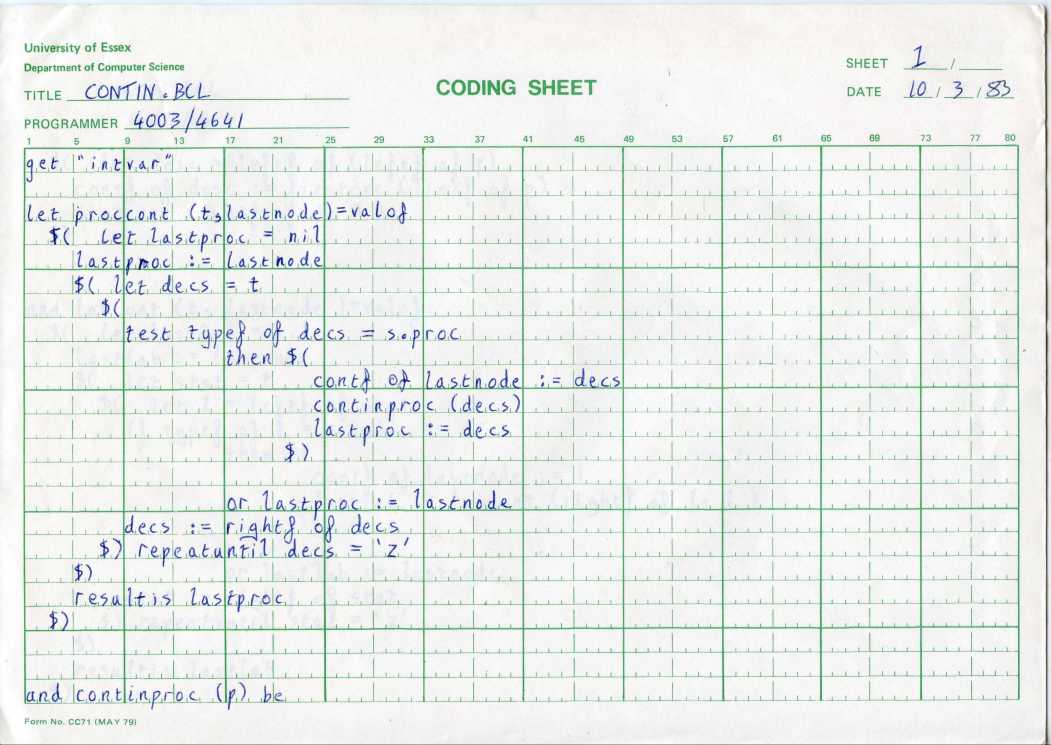 University of Essex
Department of Computer Science
TITLE CONTIN.BCL
PROGRAMMER 4003/4641
CODING SHEET
SHEET 1 /
DATE 10 / 3 / 83
1 5 9 13 17 21 25 29 33 37 41 45 49 53 57 61 65 69 73 77 80
get "intvar"
let proccont (t,lastnode)=valof
$( let lastproc = nil
lastproc := lastnode
$( let decs = t
$(
test typef of decs = s.proc
then $(
contf of lastnode := decs
continproc (decs)
lastproc := decs
$)
or lastproc := lastnode
decs := rightf of decs
$) repeatuntil decs = 'z'
$)
resultis lastproc
$)
and continproc (p) be
Form No. CC71 (MAY 79)